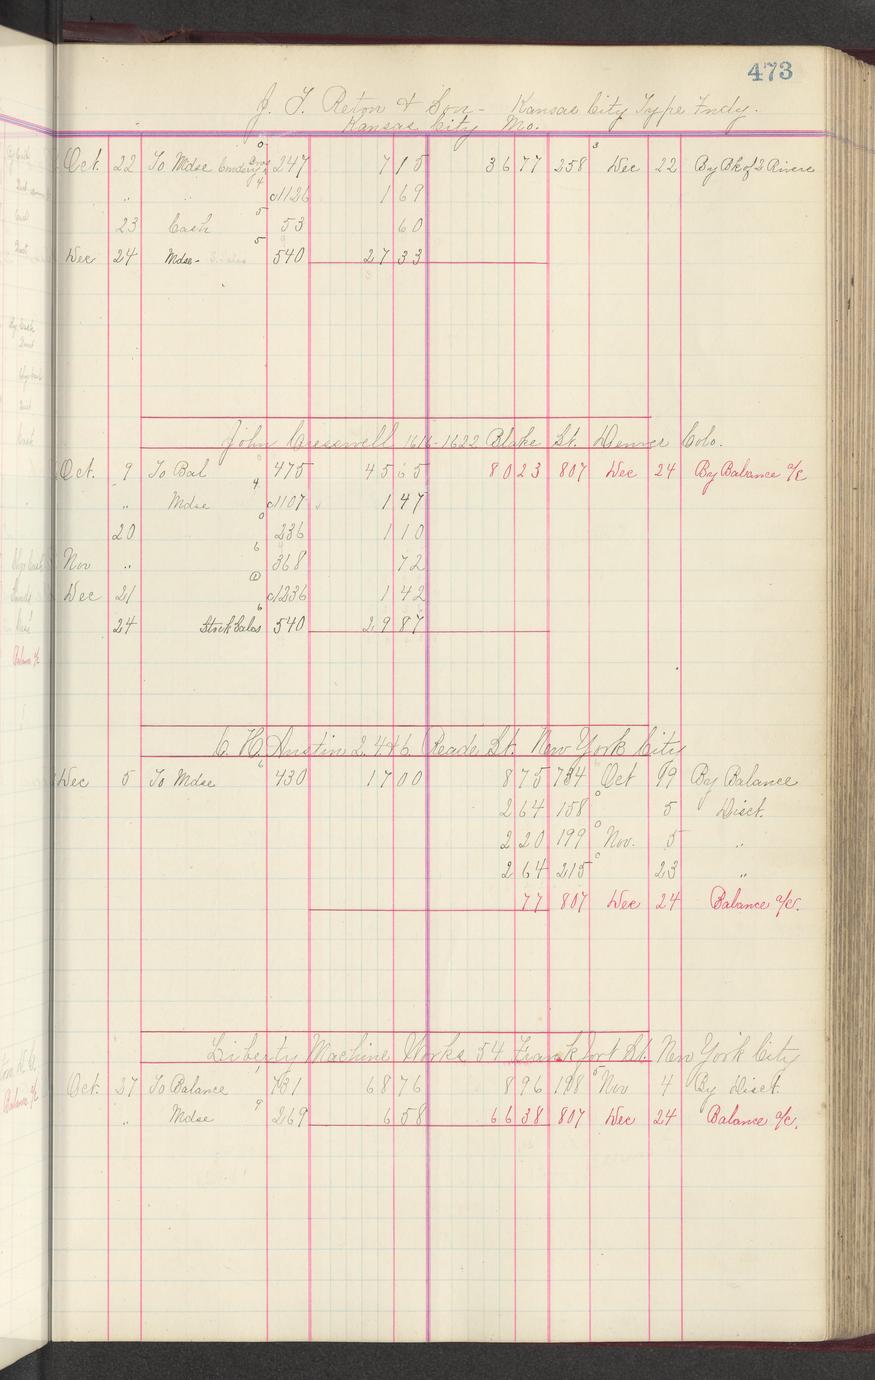 473
J. T. Reton & Son - Kansas City Type Fndy.
Kansas City Mo.
Oct. 22 To Mdse 247 7 15 36 77 258 3 Dec 22 By Bk of 2 Rivers
" " 4 c1126 1 69
23 Cash 5 53 60
Dec 24 Mdse - 5 540 27 33
John Cresswell 1616-1622 Blake St. Denver Colo.
Oct. 9 To Bal 475 45 65 80 23 807 Dec 24 By Balance a/c
" Mdse 4 c1107 1 47
20 0 236 1 10
Nov " 6 368 72
Dec 21 c1236 1 42
24 Stock Sales 6 540 29 87
C. H. Austin 2, 4 & 6 Reade St. New York City
Dec 5 To Mdse 6 430 17 00 8 75 734 Oct 19 By Balance
2 64 158 0 5 Disct.
2 20 199 0 Nov. 5 "
2 64 215 0 23 "
77 807 Dec 24 Balance a/c.
Liberty Machine Works 54 Frankfort St. New York City
Oct. 27 To Balance 731 68 76 8 96 198 5 Nov 4 By Disct.
" Mdse 9 269 6 58 66 38 807 Dec 24 Balance a/c.